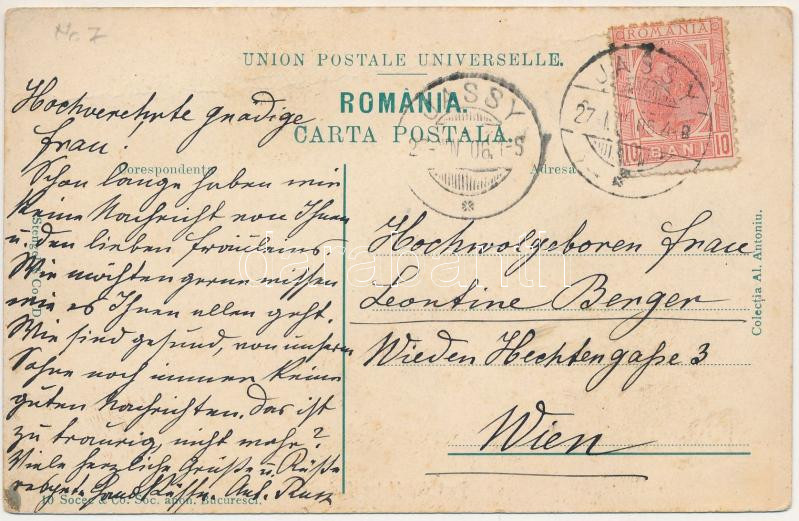 No 7
UNION POSTALE UNIVERSELLE.
ROMÂNIA.
CARTA POSTALĂ.
JASSY
JASSY
ROMANIA
10 BANI 10
Corespondența
Adresa
Hochverehrte gnädige
Frau!
Schon lange haben wir
keine Nachricht von Ihnen
u. den lieben Fräuleins.
Wir möchten gerne wissen
wie es Ihnen allen geht.
Wir sind gesund, von unserem
Sohne noch immer keine
guten Nachrichten. Das ist
zu traurig, nicht mehr?
Viele herzliche Grüße u. Küsse
Hochwolgeboren Frau
Leontine Berger
Wieden Hechtengaße 3
Wien
darabanth
Colecția Al. Antoniu.
10 Socec & Co. Soc. anon. Bucuresci.